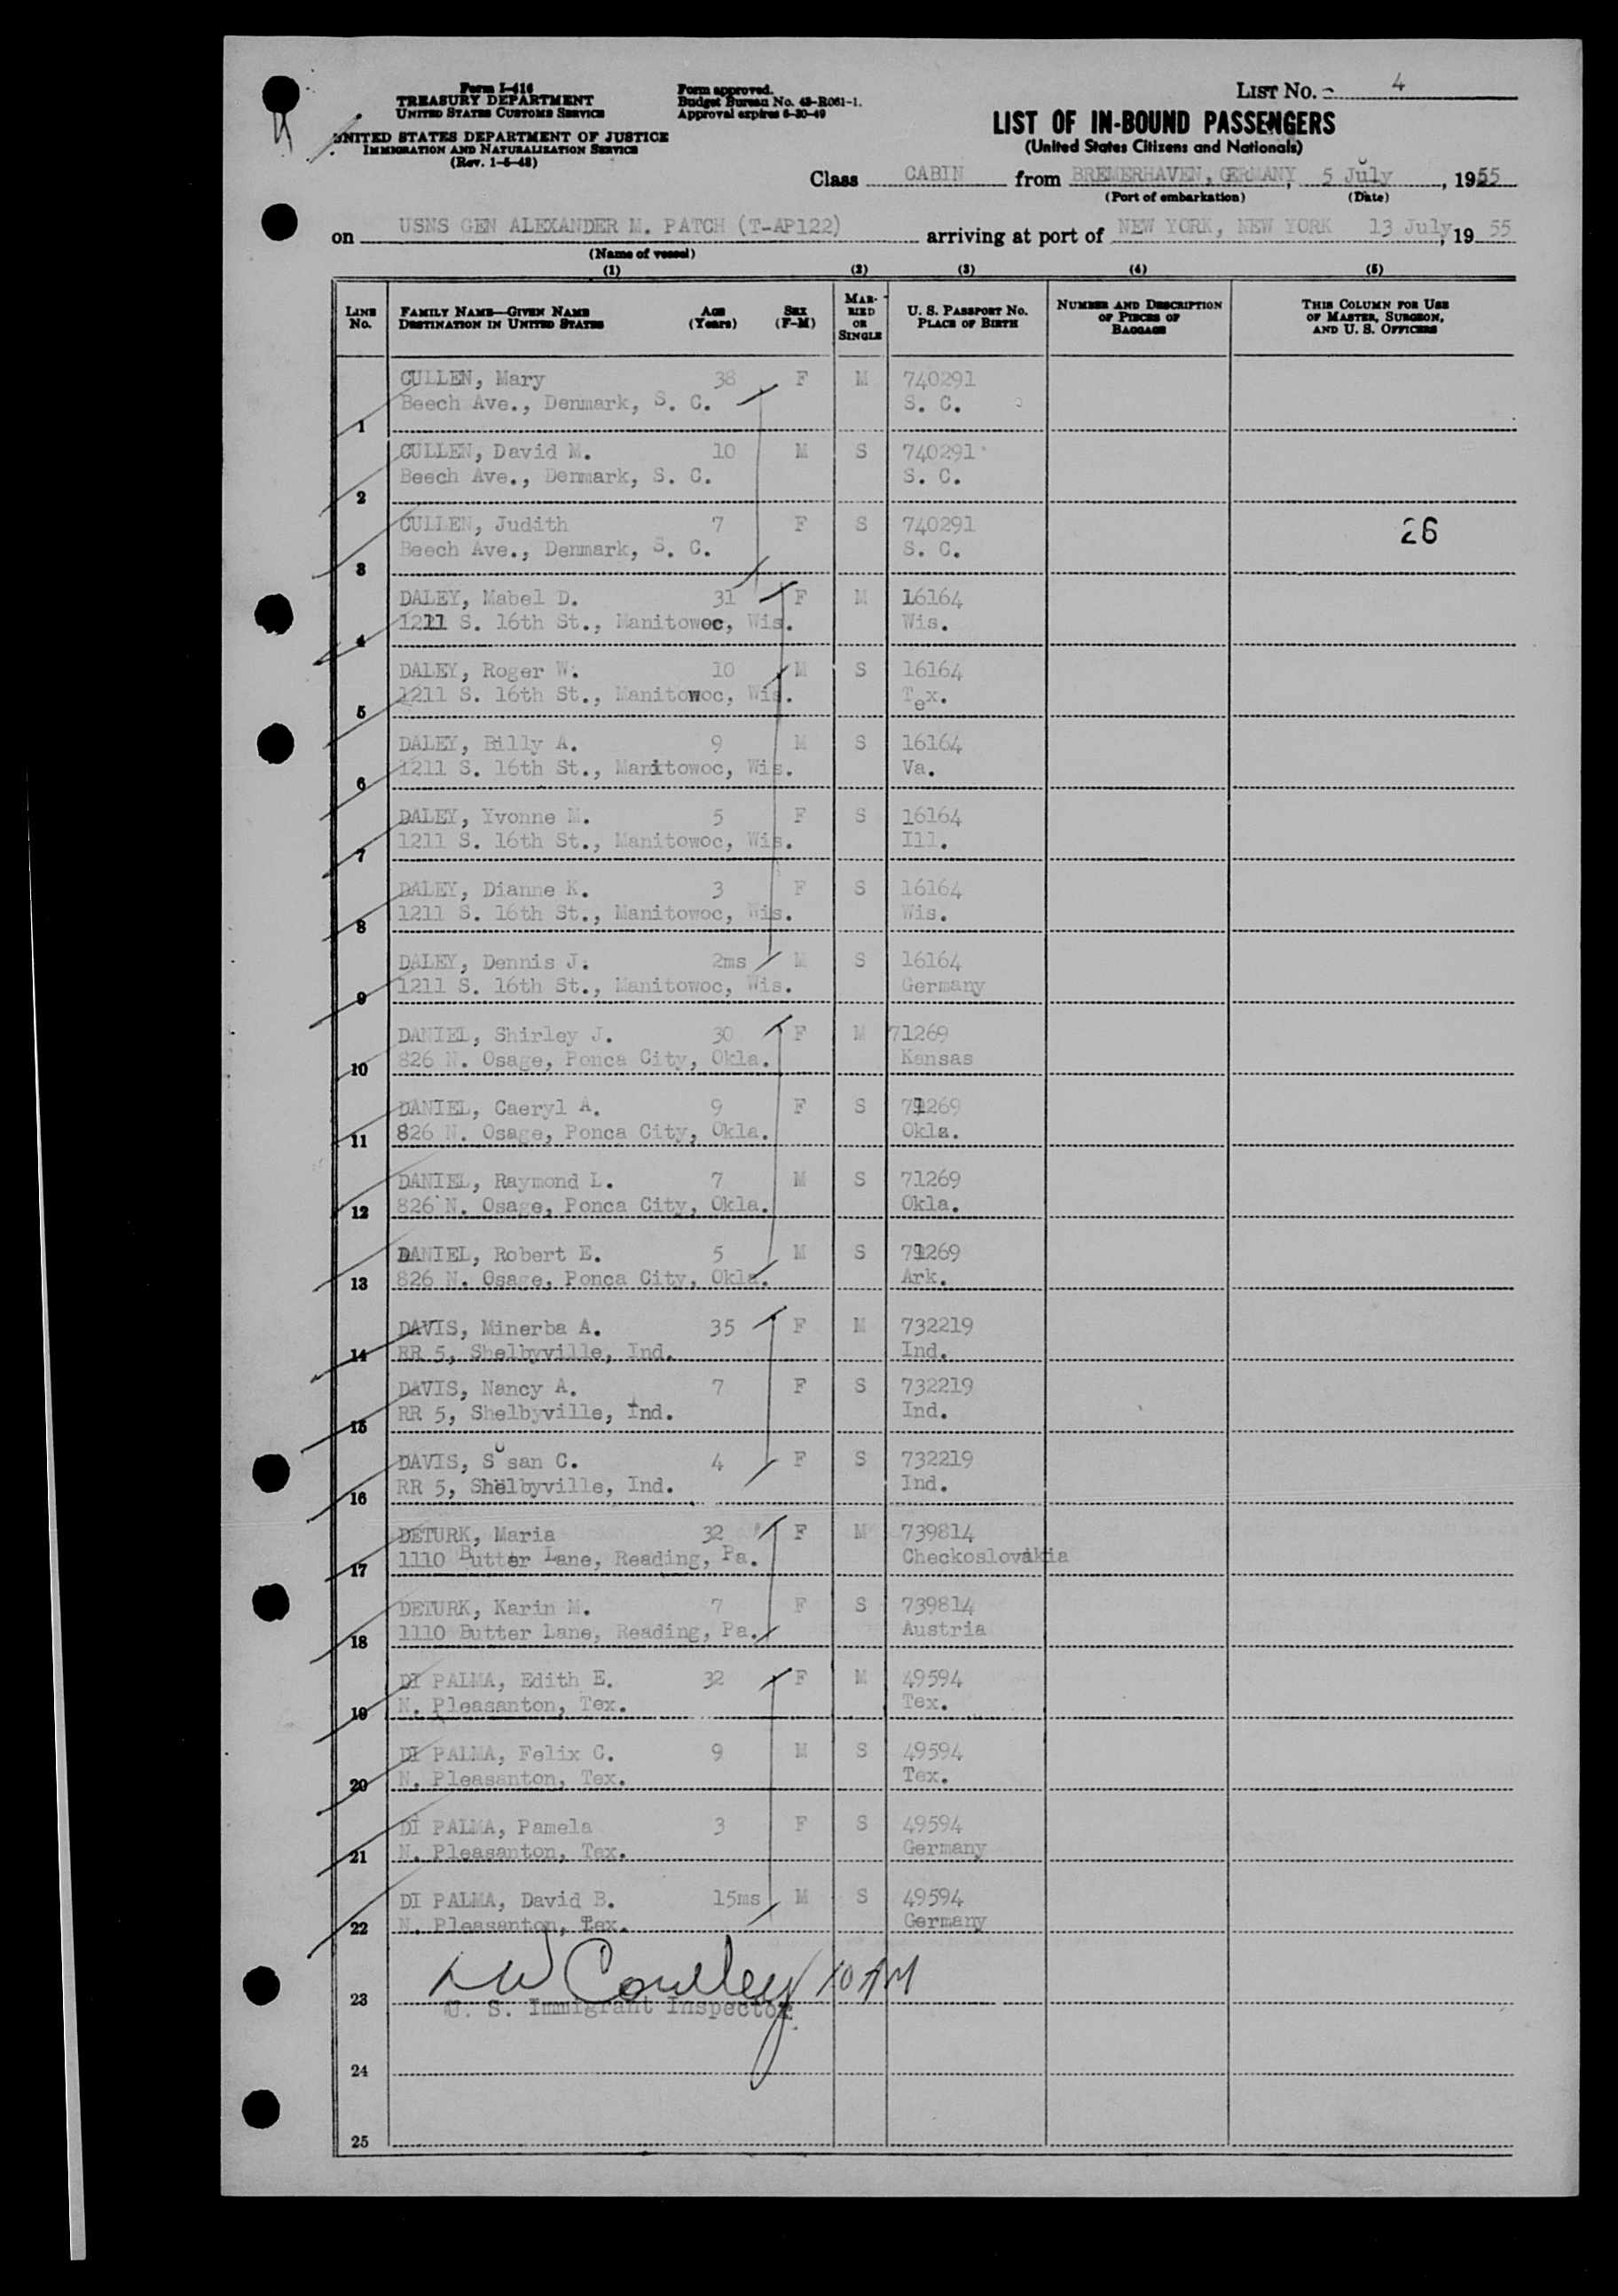 LIST No. 4
Form I-416
TREASURY DEPARTMENT
UNITED STATES CUSTOMS SERVICE
Form approved.
Budget Bureau No. 43-R061-1.
Approval expires 6-30-49
UNITED STATES DEPARTMENT OF JUSTICE
IMMIGRATION AND NATURALIZATION SERVICE
(Rev. 1-5-48)
LIST OF IN-BOUND PASSENGERS
(United States Citizens and Nationals)
Class CABIN from BREMERHAVEN, GERMANY, 5 July, 1955
(Port of embarkation) (Date)
on USNS GEN ALEXANDER M. PATCH (T-AP122) arriving at port of NEW YORK, NEW YORK 13 July, 19 55
(Name of vessel)
(1) (2) (3) (4) (5)
LINE No. FAMILY NAME—GIVEN NAME DESTINATION IN UNITED STATES AGE (Years) SEX (F-M) MARRIED OR SINGLE U. S. PASSPORT NO. PLACE OF BIRTH NUMBER AND DESCRIPTION OF PIECES OF BAGGAGE THIS COLUMN FOR USE OF MASTER, SURGEON, AND U. S. OFFICERS
CULLEN, Mary 38 F M 740291
1 Beech Ave., Denmark, S. C. S. C.
CULLEN, David M. 10 M S 740291
2 Beech Ave., Denmark, S. C. S. C.
CULLEN, Judith 7 F S 740291 26
3 Beech Ave., Denmark, S. C. S. C.
DALEY, Mabel D. 31 F M 16164
4 1211 S. 16th St., Manitowoc, Wis. Wis.
DALEY, Roger W. 10 M S 16164
5 1211 S. 16th St., Manitowoc, Wis. Tex.
DALEY, Billy A. 9 M S 16164
6 1211 S. 16th St., Manitowoc, Wis. Va.
DALEY, Yvonne M. 5 F S 16164
7 1211 S. 16th St., Manitowoc, Wis. Ill.
DALEY, Dianne K. 3 F S 16164
8 1211 S. 16th St., Manitowoc, Wis. Wis.
DALEY, Dennis J. 2ms M S 16164
9 1211 S. 16th St., Manitowoc, Wis. Germany
DANIEL, Shirley J. 30 F M 71269
10 826 N. Osage, Ponca City, Okla. Kansas
DANIEL, Caeryl A. 9 F S 71269
11 826 N. Osage, Ponca City, Okla. Okla.
DANIEL, Raymond L. 7 M S 71269
12 826 N. Osage, Ponca City, Okla. Okla.
DANIEL, Robert E. 5 M S 71269
13 826 N. Osage, Ponca City, Okla. Ark.
DAVIS, Minerba A. 35 F M 732219
14 RR 5, Shelbyville, Ind. Ind.
DAVIS, Nancy A. 7 F S 732219
15 RR 5, Shelbyville, Ind. Ind.
DAVIS, Susan C. 4 F S 732219
16 RR 5, Shelbyville, Ind. Ind.
DETURK, Maria 32 F M 739814
17 1110 Butter Lane, Reading, Pa. Checkoslovakia
DETURK, Karin M. 7 F S 739814
18 1110 Butter Lane, Reading, Pa. Austria
DI PALMA, Edith E. 32 F M 49594
19 N. Pleasanton, Tex. Tex.
DI PALMA, Felix C. 9 M S 49594
20 N. Pleasanton, Tex. Tex.
DI PALMA, Pamela 3 F S 49594
21 N. Pleasanton, Tex. Germany
DI PALMA, David B. 15ms M S 49594
22 N. Pleasanton, Tex. Germany
10 AM
23 U. S. Immigrant Inspector
24
25